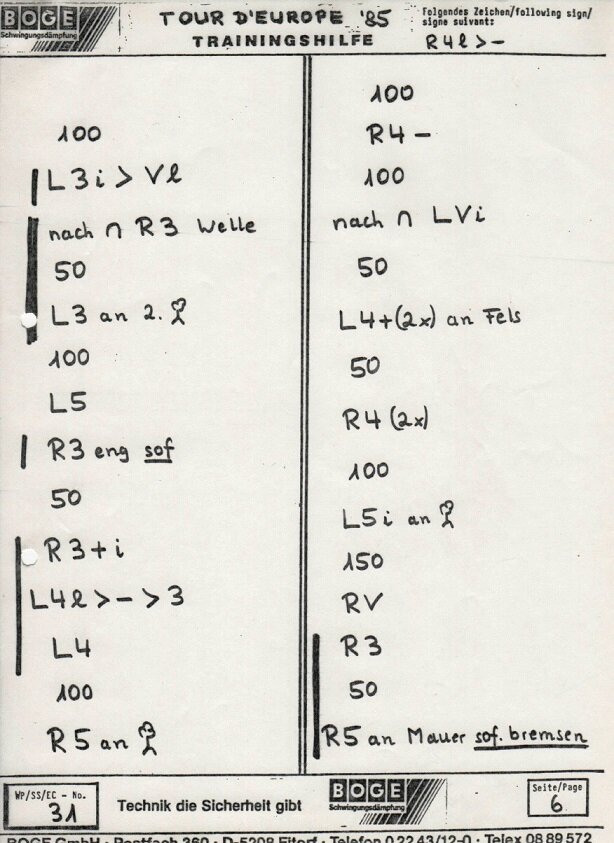 BOGE
Schwingungsdämpfung
TOUR D'EUROPE '85
TRAININGSHILFE
Folgendes Zeichen/following sign/
signe suivant:
R4l>-
100
L3i > Vl
nach ∩ R3 Welle
50
L3 an 2.
100
L5
R3 eng sof
50
R3+i
L4l>->3
L4
100
R5 an
100
R4-
100
nach ∩ LVi
50
L4+(2x) an Fels
50
R4(2x)
100
L5i an
150
RV
R3
50
R5 an Mauer sof. bremsen
WP/SS/EC - No.
31
Technik die Sicherheit gibt
BOGE
Schwingungsdämpfung
Seite/Page
6
BOGE GmbH · Postfach 360 · D-5208 Eitorf · Telefon 0 22 43/12-0 · Telex 08 89 572